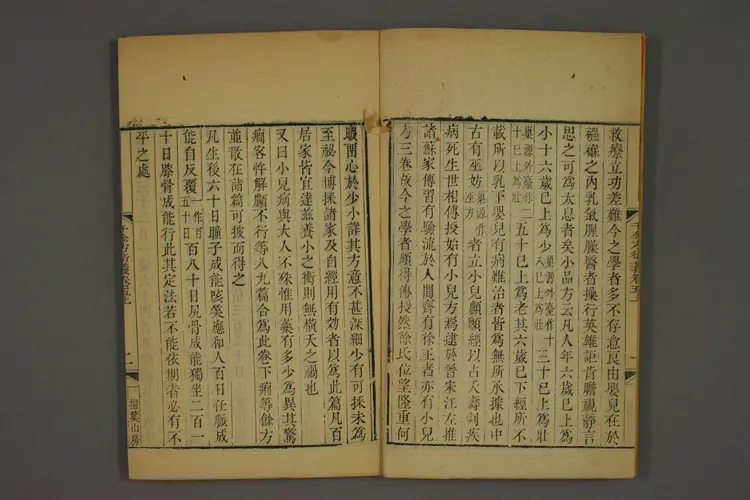 救療立功差難今之學者多不存意良由嬰兒在於
襁褓之內乳氣腥臊醫者操行英雄詎肯瞻視靜言
思之可為太息者矣小品方云凡人年六歲已上為
小十六歲已上為少巢源外臺作十八已上為少三十已上為壯
巢源外臺作二十已上為壯五十已上為老其六歲已下經所不
載所以乳下嬰兒有病難治者皆為無所承據也中
古有巫妨巢源作巫方者立小兒顱顖經以占夭壽判疾
病死生世相傳授始有小兒方焉逮於晉宋江左推
諸蘇家傳習有驗流於人間齊有徐王者亦有小兒
方三卷故今之學者頗得傳授然徐氏位望隆重何
暇留心於少小詳其方意不甚深細少有可採未為
至祕今博採諸家及自經用有効者以為此篇凡百
居家皆宜達茲養小之術則無橫夭之禍也
又曰小兒病與大人不殊惟用藥有多少為異其驚
癇客忤解顱不行等八九篇合為此卷下痢等餘方
並散在諸篇可披而得之
凡生後六十日瞳子成能咳笑應和人百日任脈成
能自反覆一作百五十日百八十日尻骨成能獨坐二百一
十日膝骨成能行此其定法若不能依期者必有不
平之處
一
掃葉山房